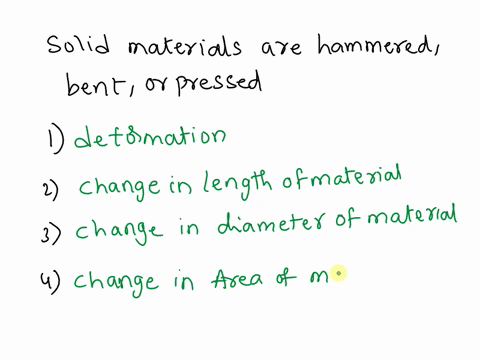 Solid materials are hammered,
bent, or pressed
1) deformation
2) change in length of material
3) change in diameter of material
4) change in Area of m